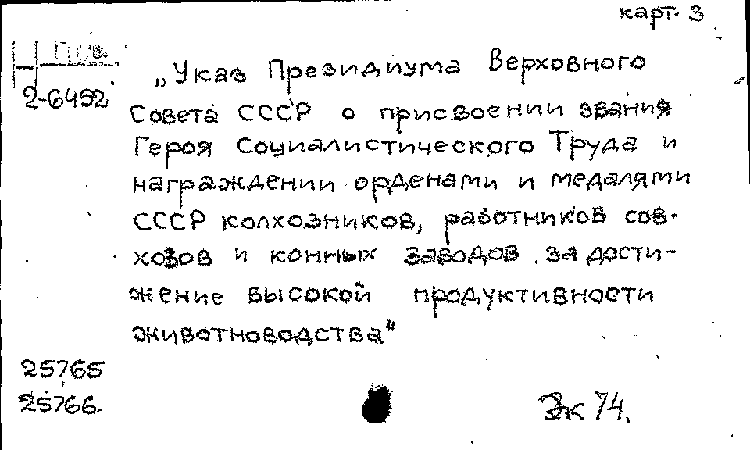 карт. 3
2-6492
„Указ Президиума Верховного
Совета СССР о присвоении звания
Героя Социалистического Труда и
награждении орденами и медалями
СССР колхозников, работников сов-
хозов и конных заводов за дости-
жение высокой продуктивности
животноводства"
25765
25766.
Эк 74.